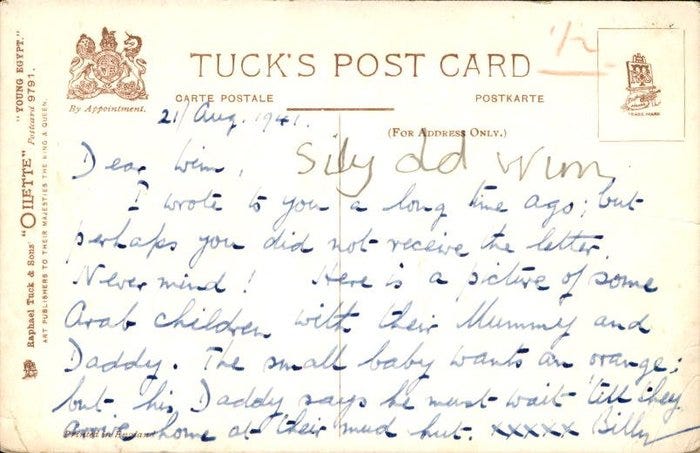 TUCK'S POST CARD
1/2
By Appointment.
CARTE POSTALE
POSTKARTE
(FOR ADDRESS ONLY.)
TRADE MARK
Raphael Tuck & Sons' "OILETTE" "YOUNG EGYPT." Postcard 9791.
ART PUBLISHERS TO THEIR MAJESTIES THE KING & QUEEN.
21/Aug. 1941.
Dear Wim,
Sily old Wim
I wrote to you a long time ago; but
perhaps you did not receive the letter.
Never mind! Here is a picture of some
Arab children with their Mummy and
Daddy. The small baby wants an orange;
but his Daddy says he must wait 'till they
arrive home at their mud hut. xxxxx Billy
Printed in England